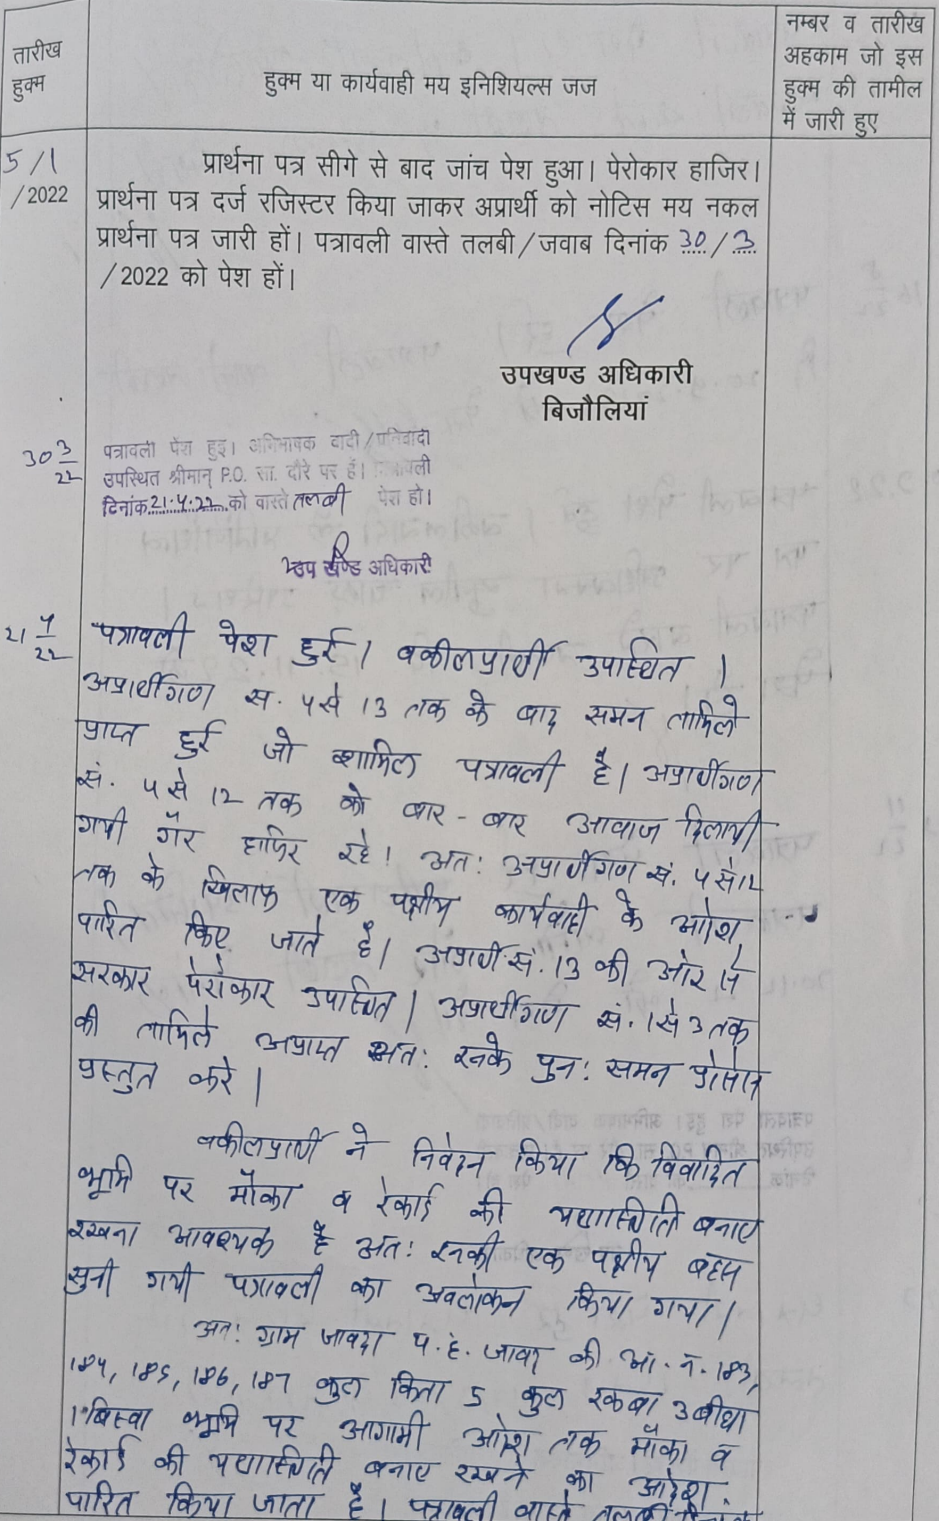 तारीख
हुक्म
हुक्म या कार्यवाही मय इनिशियल्स जज
नम्बर व तारीख
अहकाम जो इस
हुक्म की तामील
में जारी हुए
5/1
/2022
प्रार्थना पत्र सीगे से बाद जांच पेश हुआ। पेरोकार हाजिर।
प्रार्थना पत्र दर्ज रजिस्टर किया जाकर अप्रार्थी को नोटिस मय नकल
प्रार्थना पत्र जारी हों। पत्रावली वास्ते तलबी/जवाब दिनांक 30/3
/2022 को पेश हों।
उपखण्ड अधिकारी
बिजौलियां
30 3/22
पत्रावली पेश हुइ। अभिभाषक वादी/प्रतिवादी
उपस्थित श्रीमान् P.O. सा. दौरे पर हैं। पत्रावली
दिनांक 21.4.22 को वास्ते तलबी पेश हो।
उप खण्ड अधिकारी
21 4/22
पत्रावली पेश हुई। वकील प्रार्थी उपस्थित।
अप्रार्थीगण स. 4 से 13 तक के बाद समन तामिले
प्राप्त हुई जो शामिल पत्रावली है। अप्रार्थीगण
सं. 4 से 12 तक को बार-बार आवाज दिलायी
गयी गैर हाजिर रहे। अतः अप्रार्थीगण सं. 4 से 12
तक के खिलाफ एक पक्षीय कार्यवाही के आदेश
पारित किए जाते है। अप्रार्थी सं. 13 की ओर से
सरकार पेरोकार उपस्थित। अप्रार्थीगण सं. 1 से 3 तक
की तामिले अप्राप्त अतः इनके पुनः समन
प्रस्तुत करे।
वकील प्रार्थी ने निवेदन किया कि विवादित
भूमि पर मौका व रेकार्ड की यथास्थिति बनाए
रखना आवश्यक है अतः इनकी एक पक्षीय बहस
सुनी गयी पत्रावली का अवलोकन किया गया।
अतः ग्राम जावदा प.ह. जावदा की आ.न. 183,
184, 185, 186, 187 कुल किता 5 कुल रकबा 3 बीघा
1 बिस्वा भूमि पर आगामी आदेश तक मौका व
रेकार्ड की यथास्थिति बनाए रखने का आदेश
पारित किया जाता है। पत्रावली वास्ते तलबी